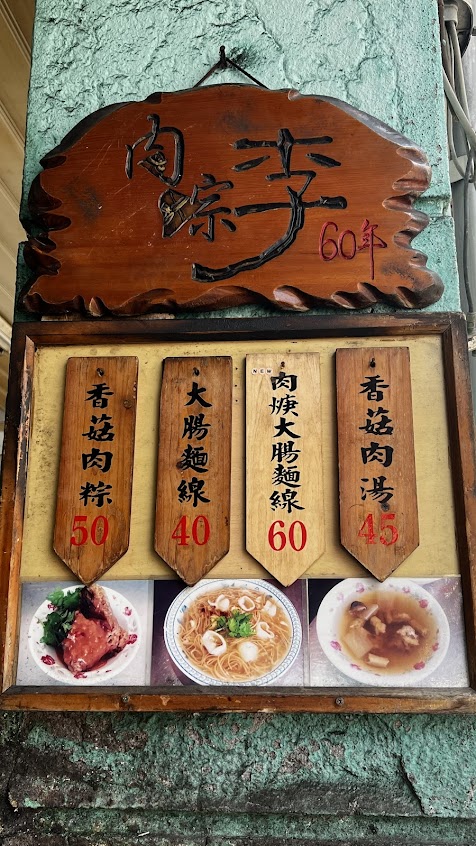 李
肉粽
60年
香菇肉湯
45
NEW
肉焿大腸麵線
60
大腸麵線
40
香菇肉粽
50